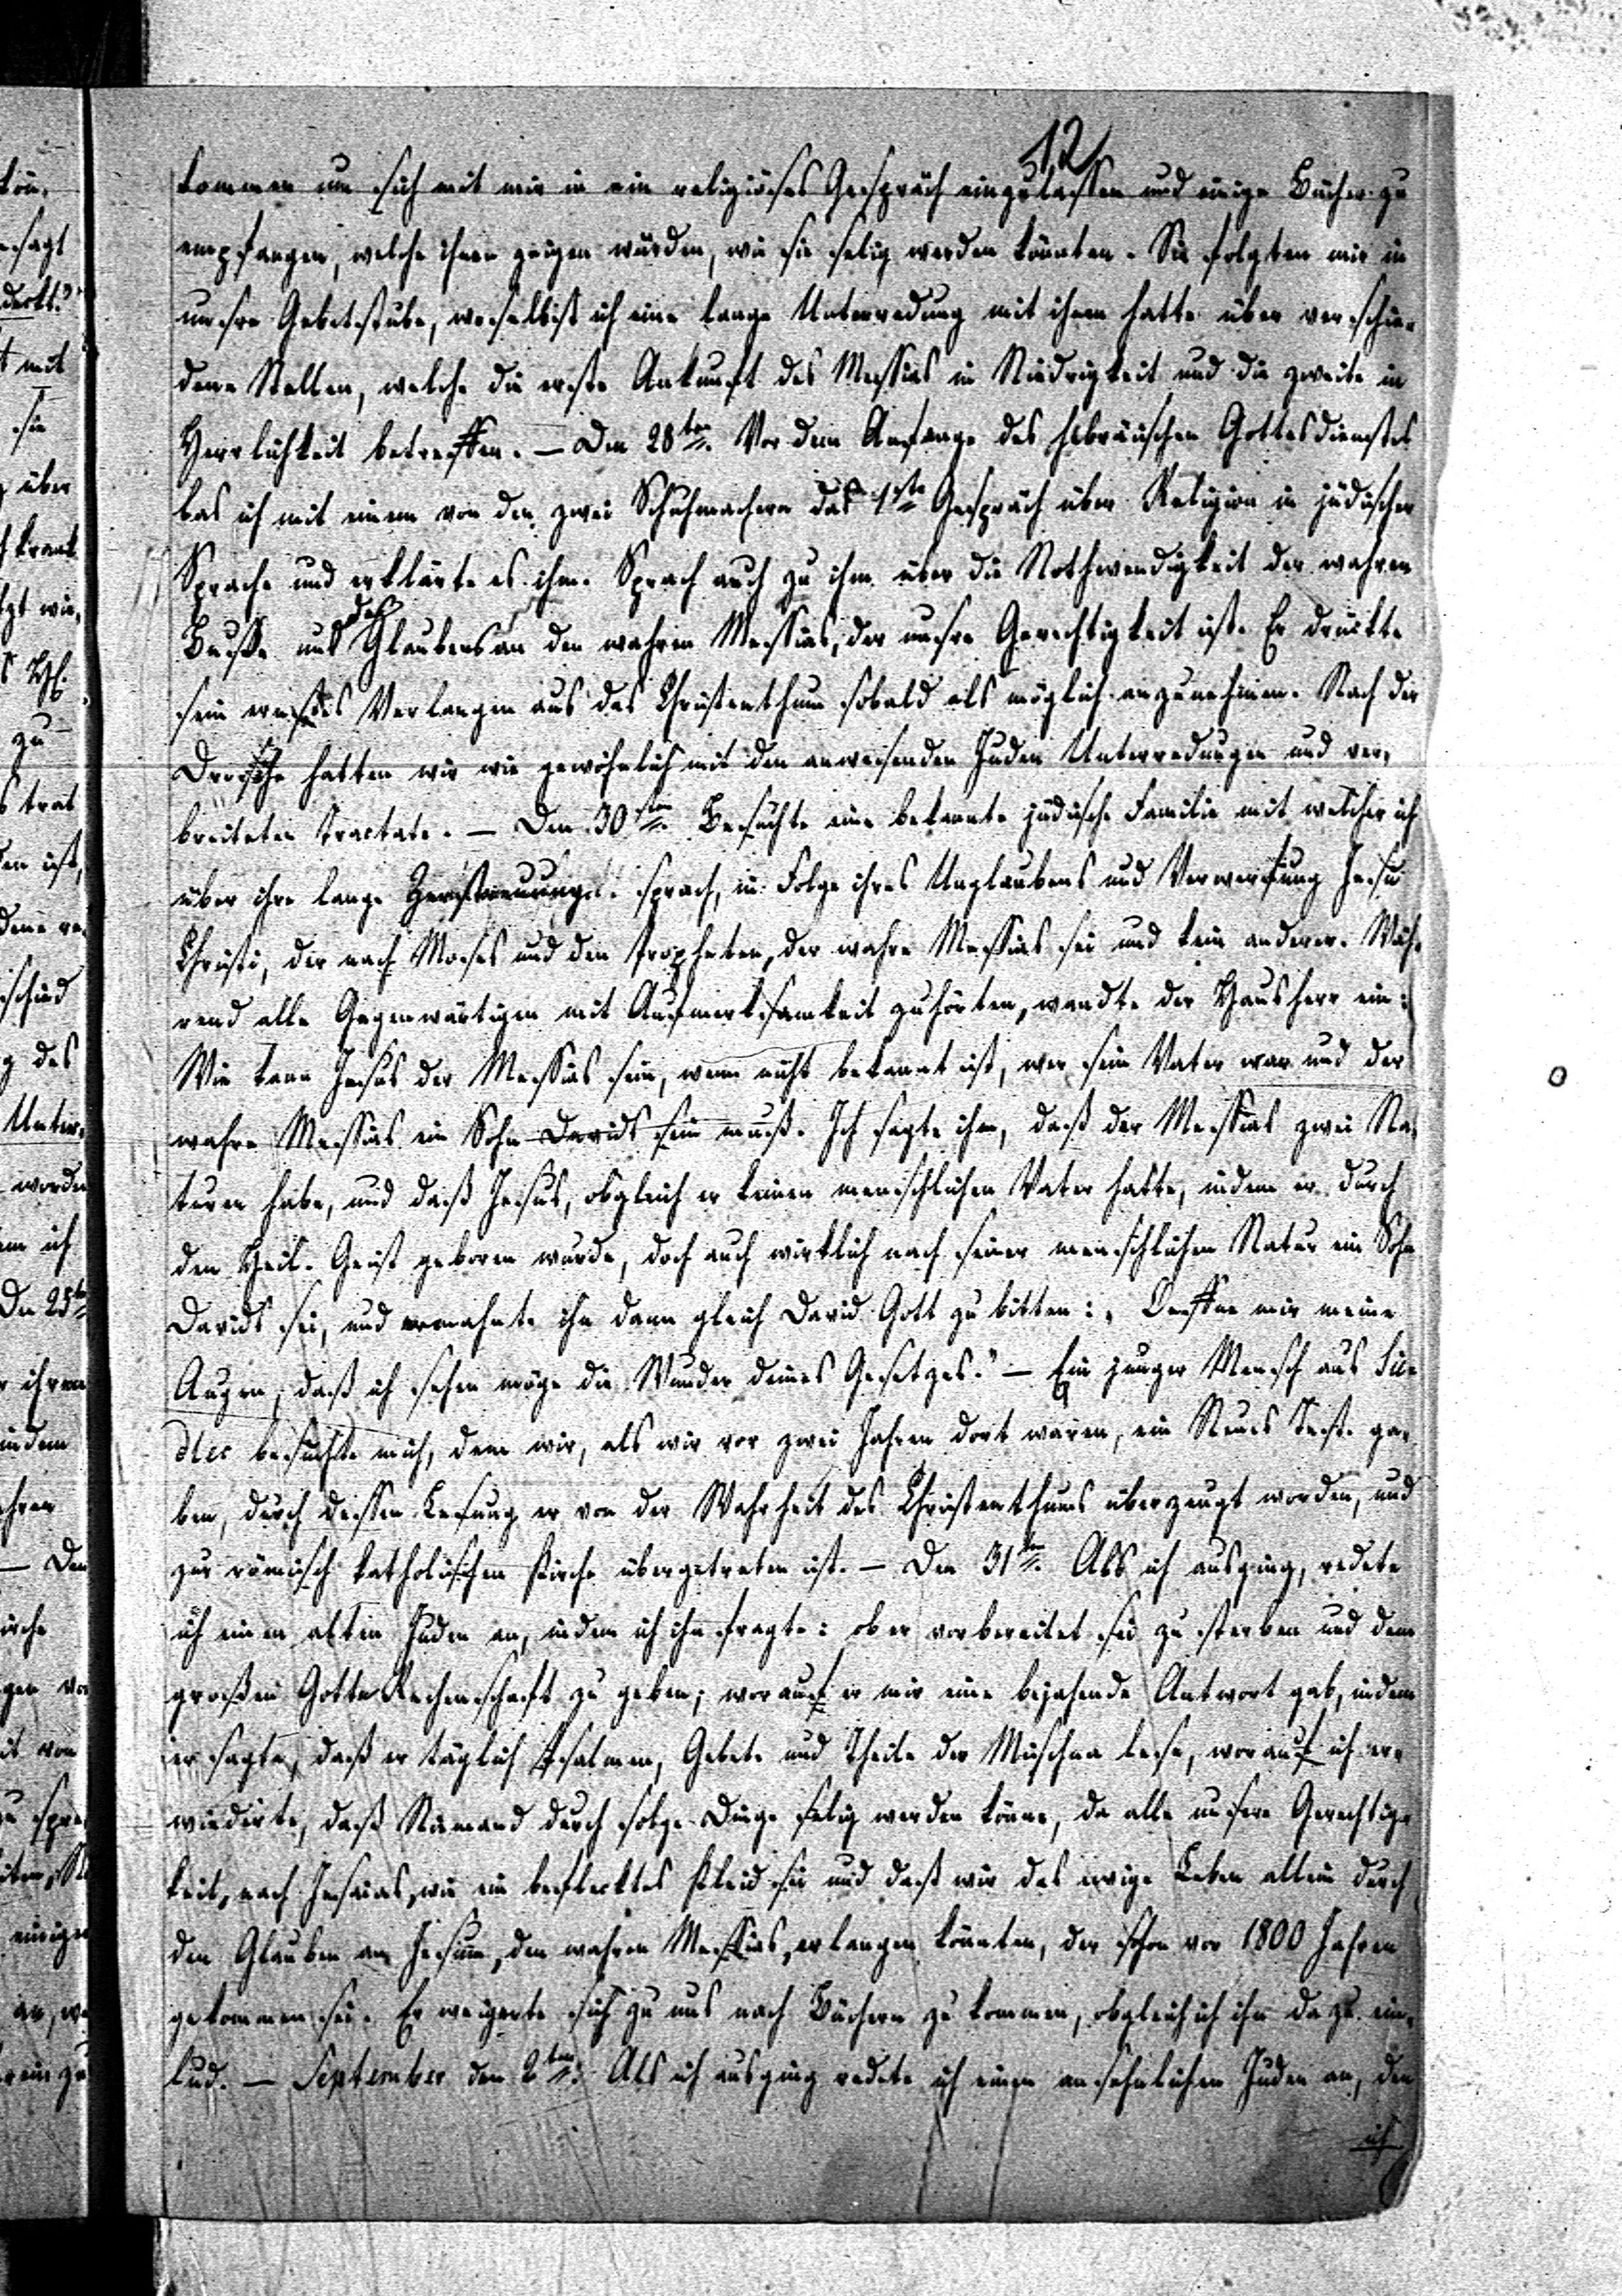 12
kommen um sich mit mir in ein religiöses Gespräch einzulassen und einige Bücher zu
empfangen, welche ihnen zeigen würden, wie sie selig werden könnten. Sie folgten mir in
unsre Gebetsstube, woselbst ich eine lange Unterredung mit ihnen hatte über verschie-
dene Stellen, welche die erste Ankunft des Messias in Niedrigkeit und die zweite in
Herrlichkeit betreffen. — Den 28ten. Vor dem Anfange des hebräischen Gottesdienstes
las ich mit einem von den zwei Schuhmachern das 1ste Gespräch über Religion in jüdischer
Sprache und erklärte es ihm. Sprach auch zu ihm über die Nothwendigkeit der wahren
Busse und des Glaubens an den wahren Messias, der unsre Gerechtigkeit ist. Er drückte
sein ernstes Verlangen aus das Christenthum sobald als möglich anzunehmen. Nach der
Drosche hatten wir wie gewöhnlich mit den anwesenden Juden Unterredungen und ver-
breiteten Tractate. — Den 30sten. Besuchte eine bekannte jüdische Familie mit welcher ich
über ihre lange Zerstreuung sprach, in Folge ihres Unglaubens und Verwerfung Jesu
Christi, der nach Moses und den Propheten, der wahre Messias sei und kein anderer. Wäh-
rend alle Gegenwärtigen mit Aufmerksamkeit zuhörten, wandte der Hausherr ein:
Wie kann Jesus der Messias sein, wenn nicht bekannt ist, wer sein Vater war und der
wahre Messias ein Sohn Davids sein muß. Ich sagte ihm, daß der Messias zwei Na-
turen habe, und daß Jesus, obgleich er keinen menschlichen Vater hatte, indem er durch
den Heil. Geist geboren wurde, doch auch wirklich nach seiner menschlichen Natur ein Sohn
Davids sei, und ermahnte ihn dann gleich David Gott zu bitten: „Oeffne mir meine
Augen, daß ich sehen möge die Wunder deines Gesetzes." — Ein junger Mensch aus Sie-
dlec besuchte mich, dem wir, als wir vor zwei Jahren dort waren, ein Neues Test. ga-
ben, durch dessen Lesung er von der Wahrheit des Christenthums überzeugt worden, und
zur römisch katholischen Kirche übergetreten ist. — Den 31ten. Als ich ausging, redete
ich einen alten Juden an, indem ich ihn fragte: ob er vorbereitet sei zu sterben und dem
großen Gotte Rechenschaft zu geben; worauf er mir eine bejahende Antwort gab, indem
er sagte, daß er täglich Psalmen, Gebete und Theile der Mischna lese, worauf ich er-
wiederte, daß Niemand durch solche Dinge selig werden könne, da alle unsere Gerechtig-
keit, nach Jesaias, wie ein beflecktes Kleid sei und daß wir das ewige Leben allein durch
den Glauben an Jesum, den wahren Messias, erlangen könnten, der schon vor 1800 Jahren
gekommen sei. Er weigerte sich zu uns nach Büchern zu kommen, obgleich ich ihn dazu ein-
lud. — September den 2ten. Als ich ausging redete ich einen ansehnlichen Juden an, den
ich